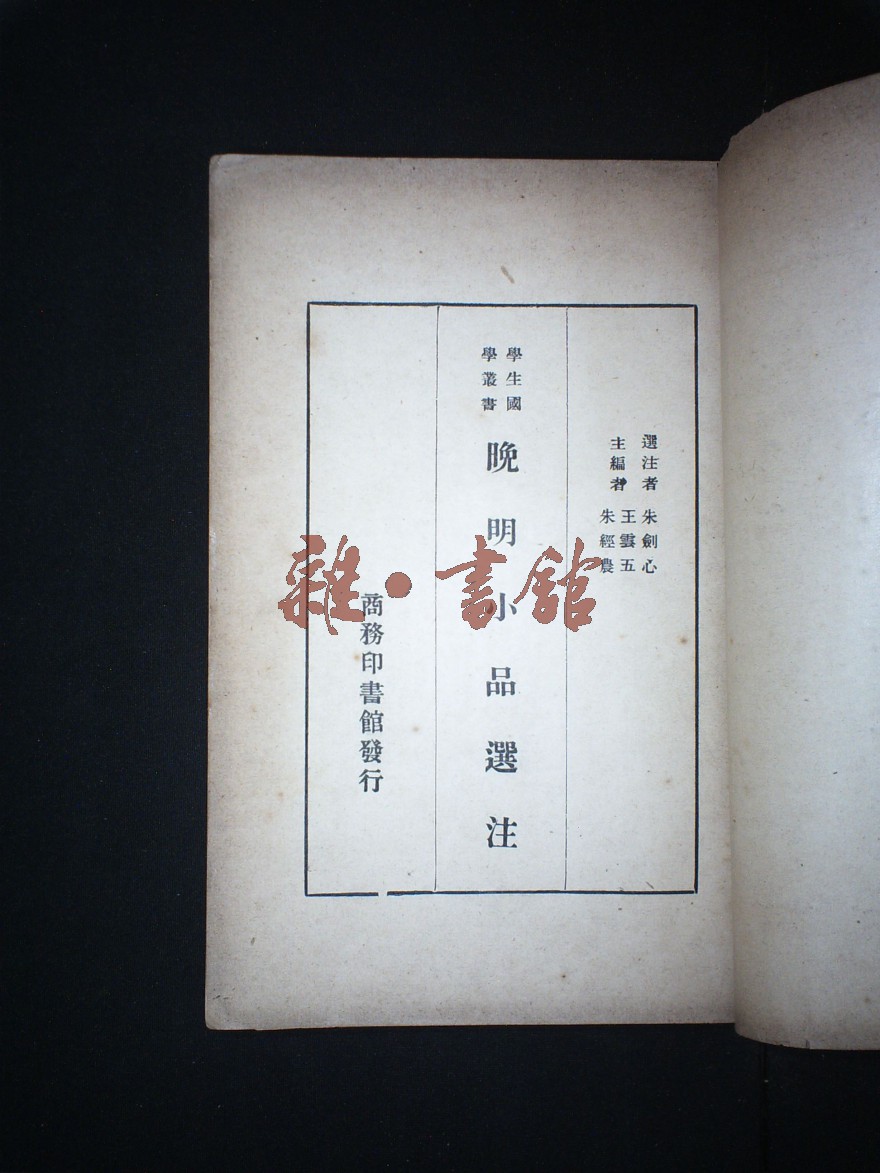 選注者 朱劍心
主編者 王雲五
朱經農
學生國
學叢書
晚明小品選注
商務印書館發行
雜·書館